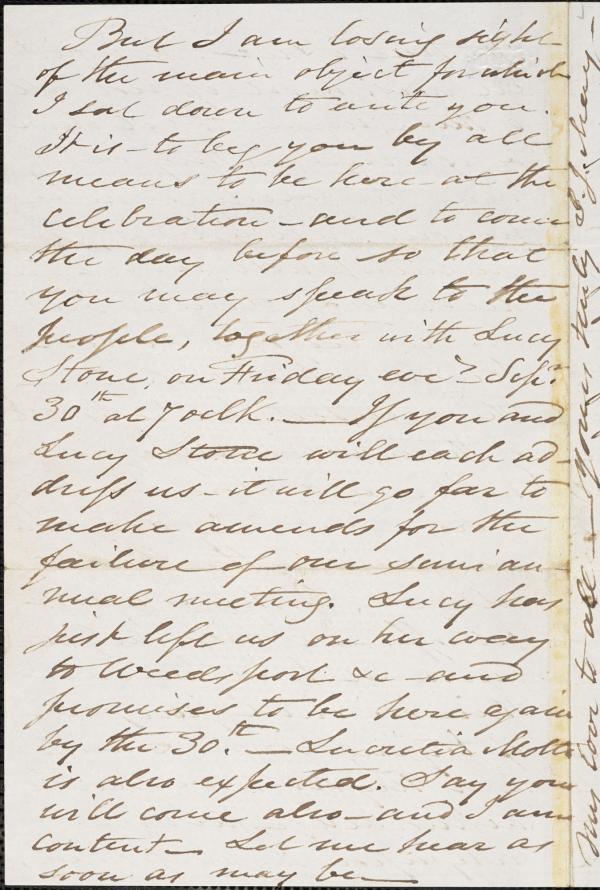 But I am losing sight
of the main object for which
I sat down to write you.
It is - to beg you by all
means to be here at the
celebration - and to come
the day before so that
you may speak to the
people, together with Lucy
Stone, on Friday eve? Sept.
30th at 7 oclk. — If you and
Lucy Stone will each ad-
dress us - it will go far to
make amends for the
failure of our semi an-
nual meeting. Lucy has
just left us on her way
to Weedsport &c - and
promises to be here again
by the 30.th — Lucretia Mott
is also expected. Say you
will come also - and I am
content - Let me hear as
soon as may be —
My love to all — yours truly S. J. May -